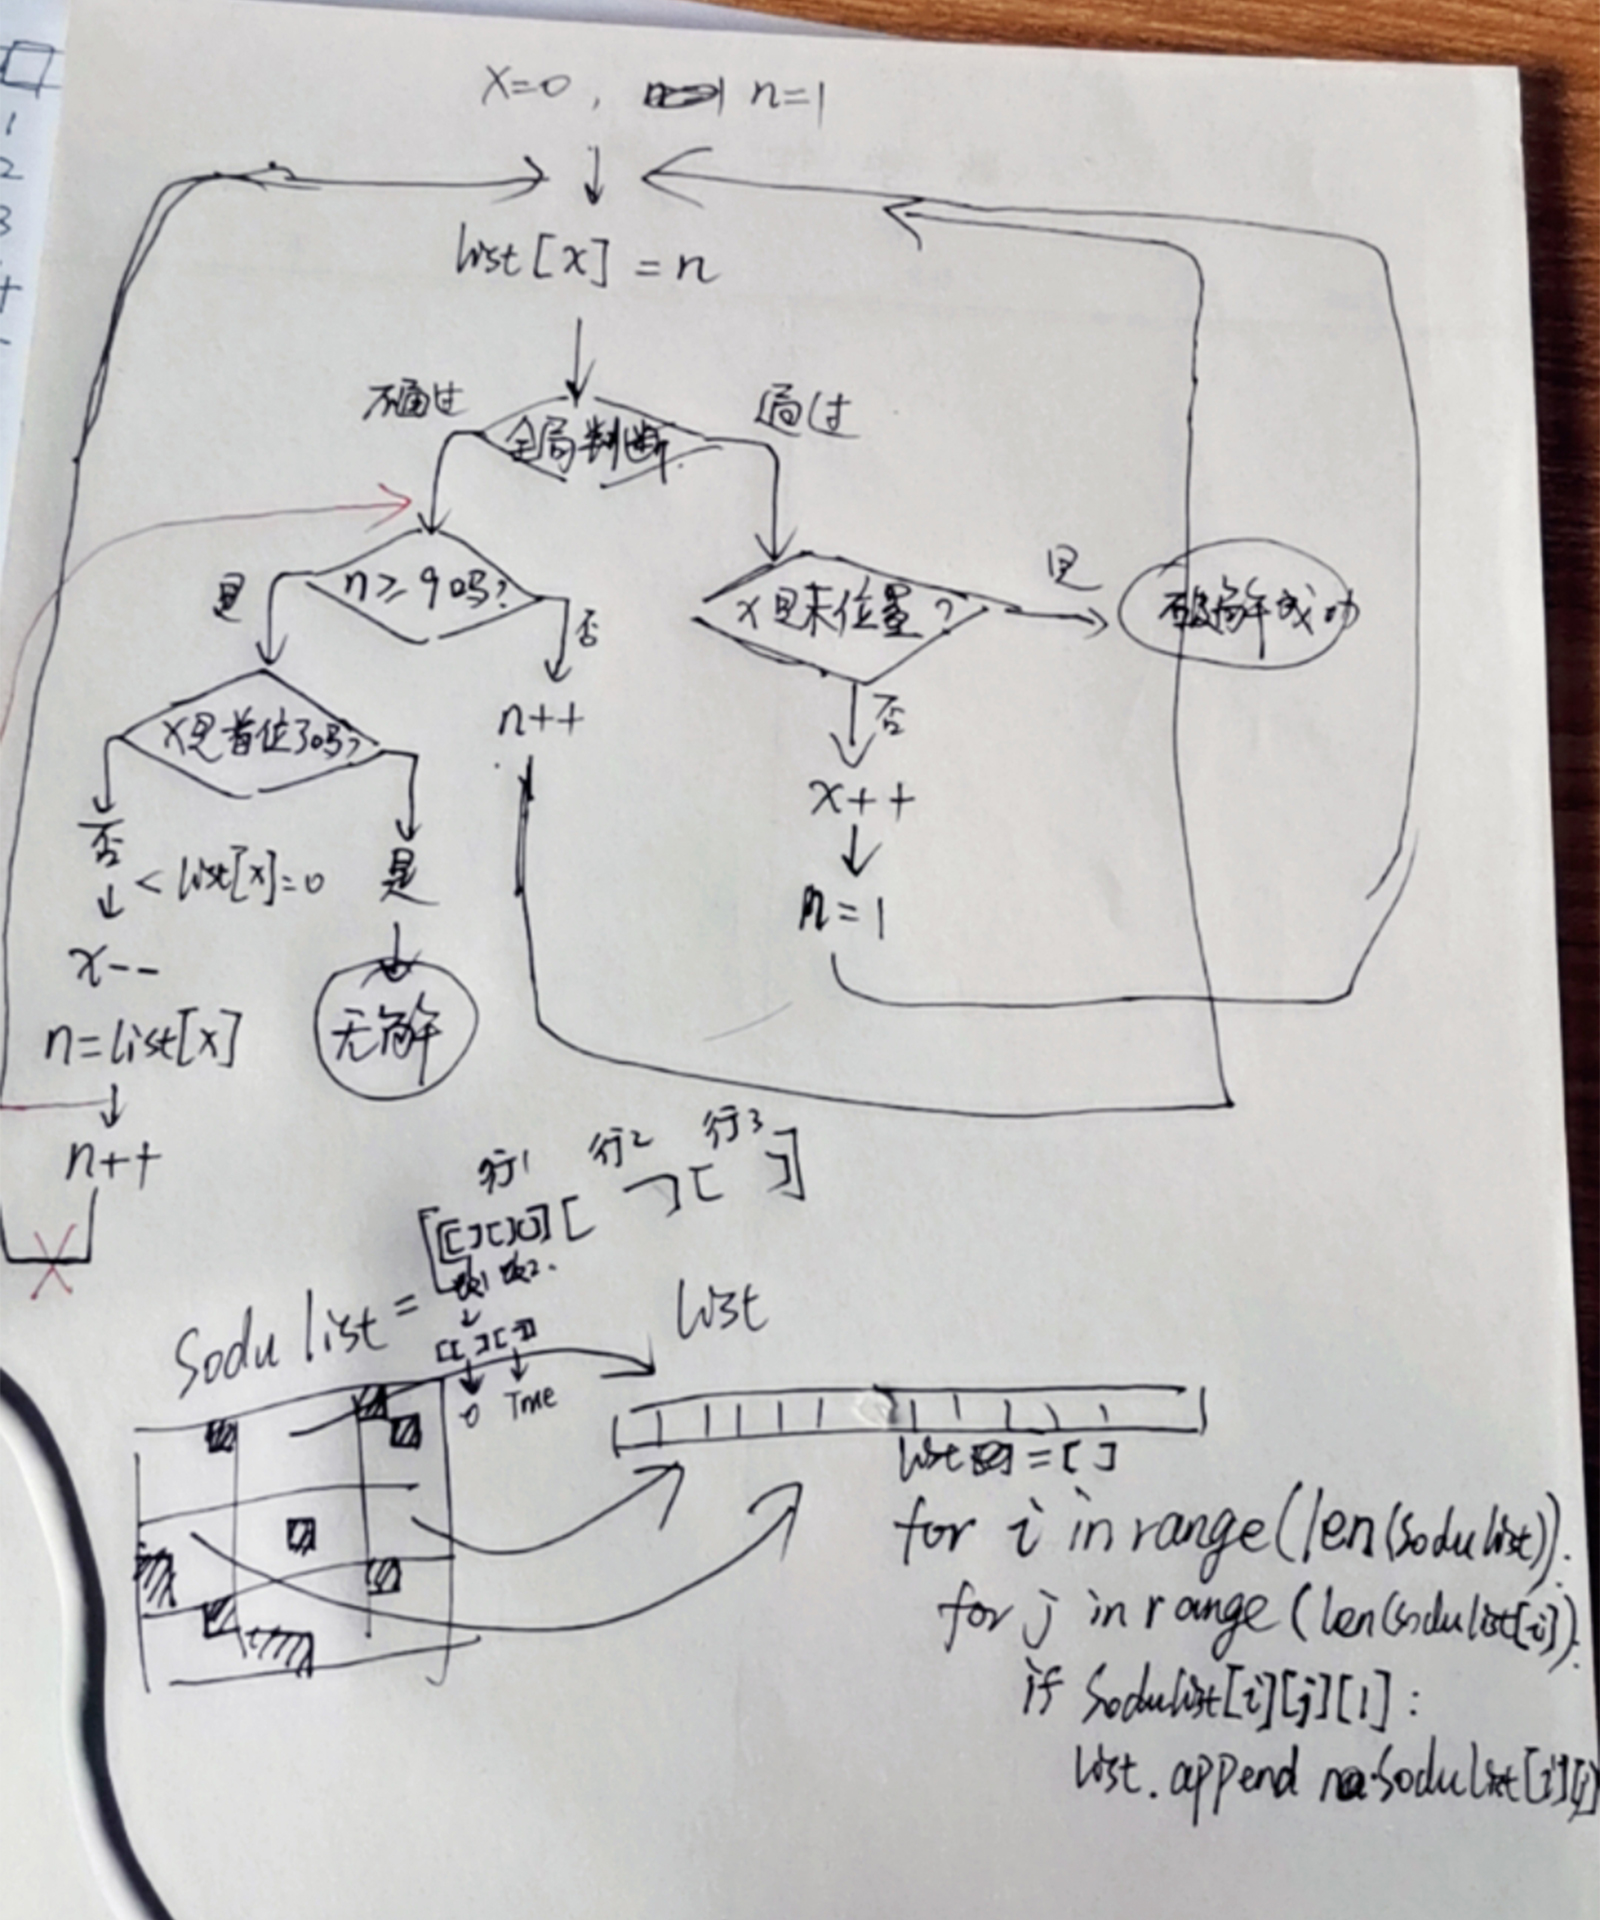 x=0, n=1
list[x]=n
不通过
全局判断
通过
n≥9吗?
是
否
x是末位置?
是
破解成功
x是首位了吗?
n++
否
x++
n=1
否
<list[x]=0
是
x--
n=list[x]
无解
n++
行1 行2 行3
[[[][][]][ ][ ]]
Sodulist=
[[ ][ ]]
0 True
list
list=[]
for i in range(len(Sodulist)).
for j in range(len(Sodulist[i]).
if Sodulist[i][j][1]:
list.append Sodulist[i][j]
1
2
3